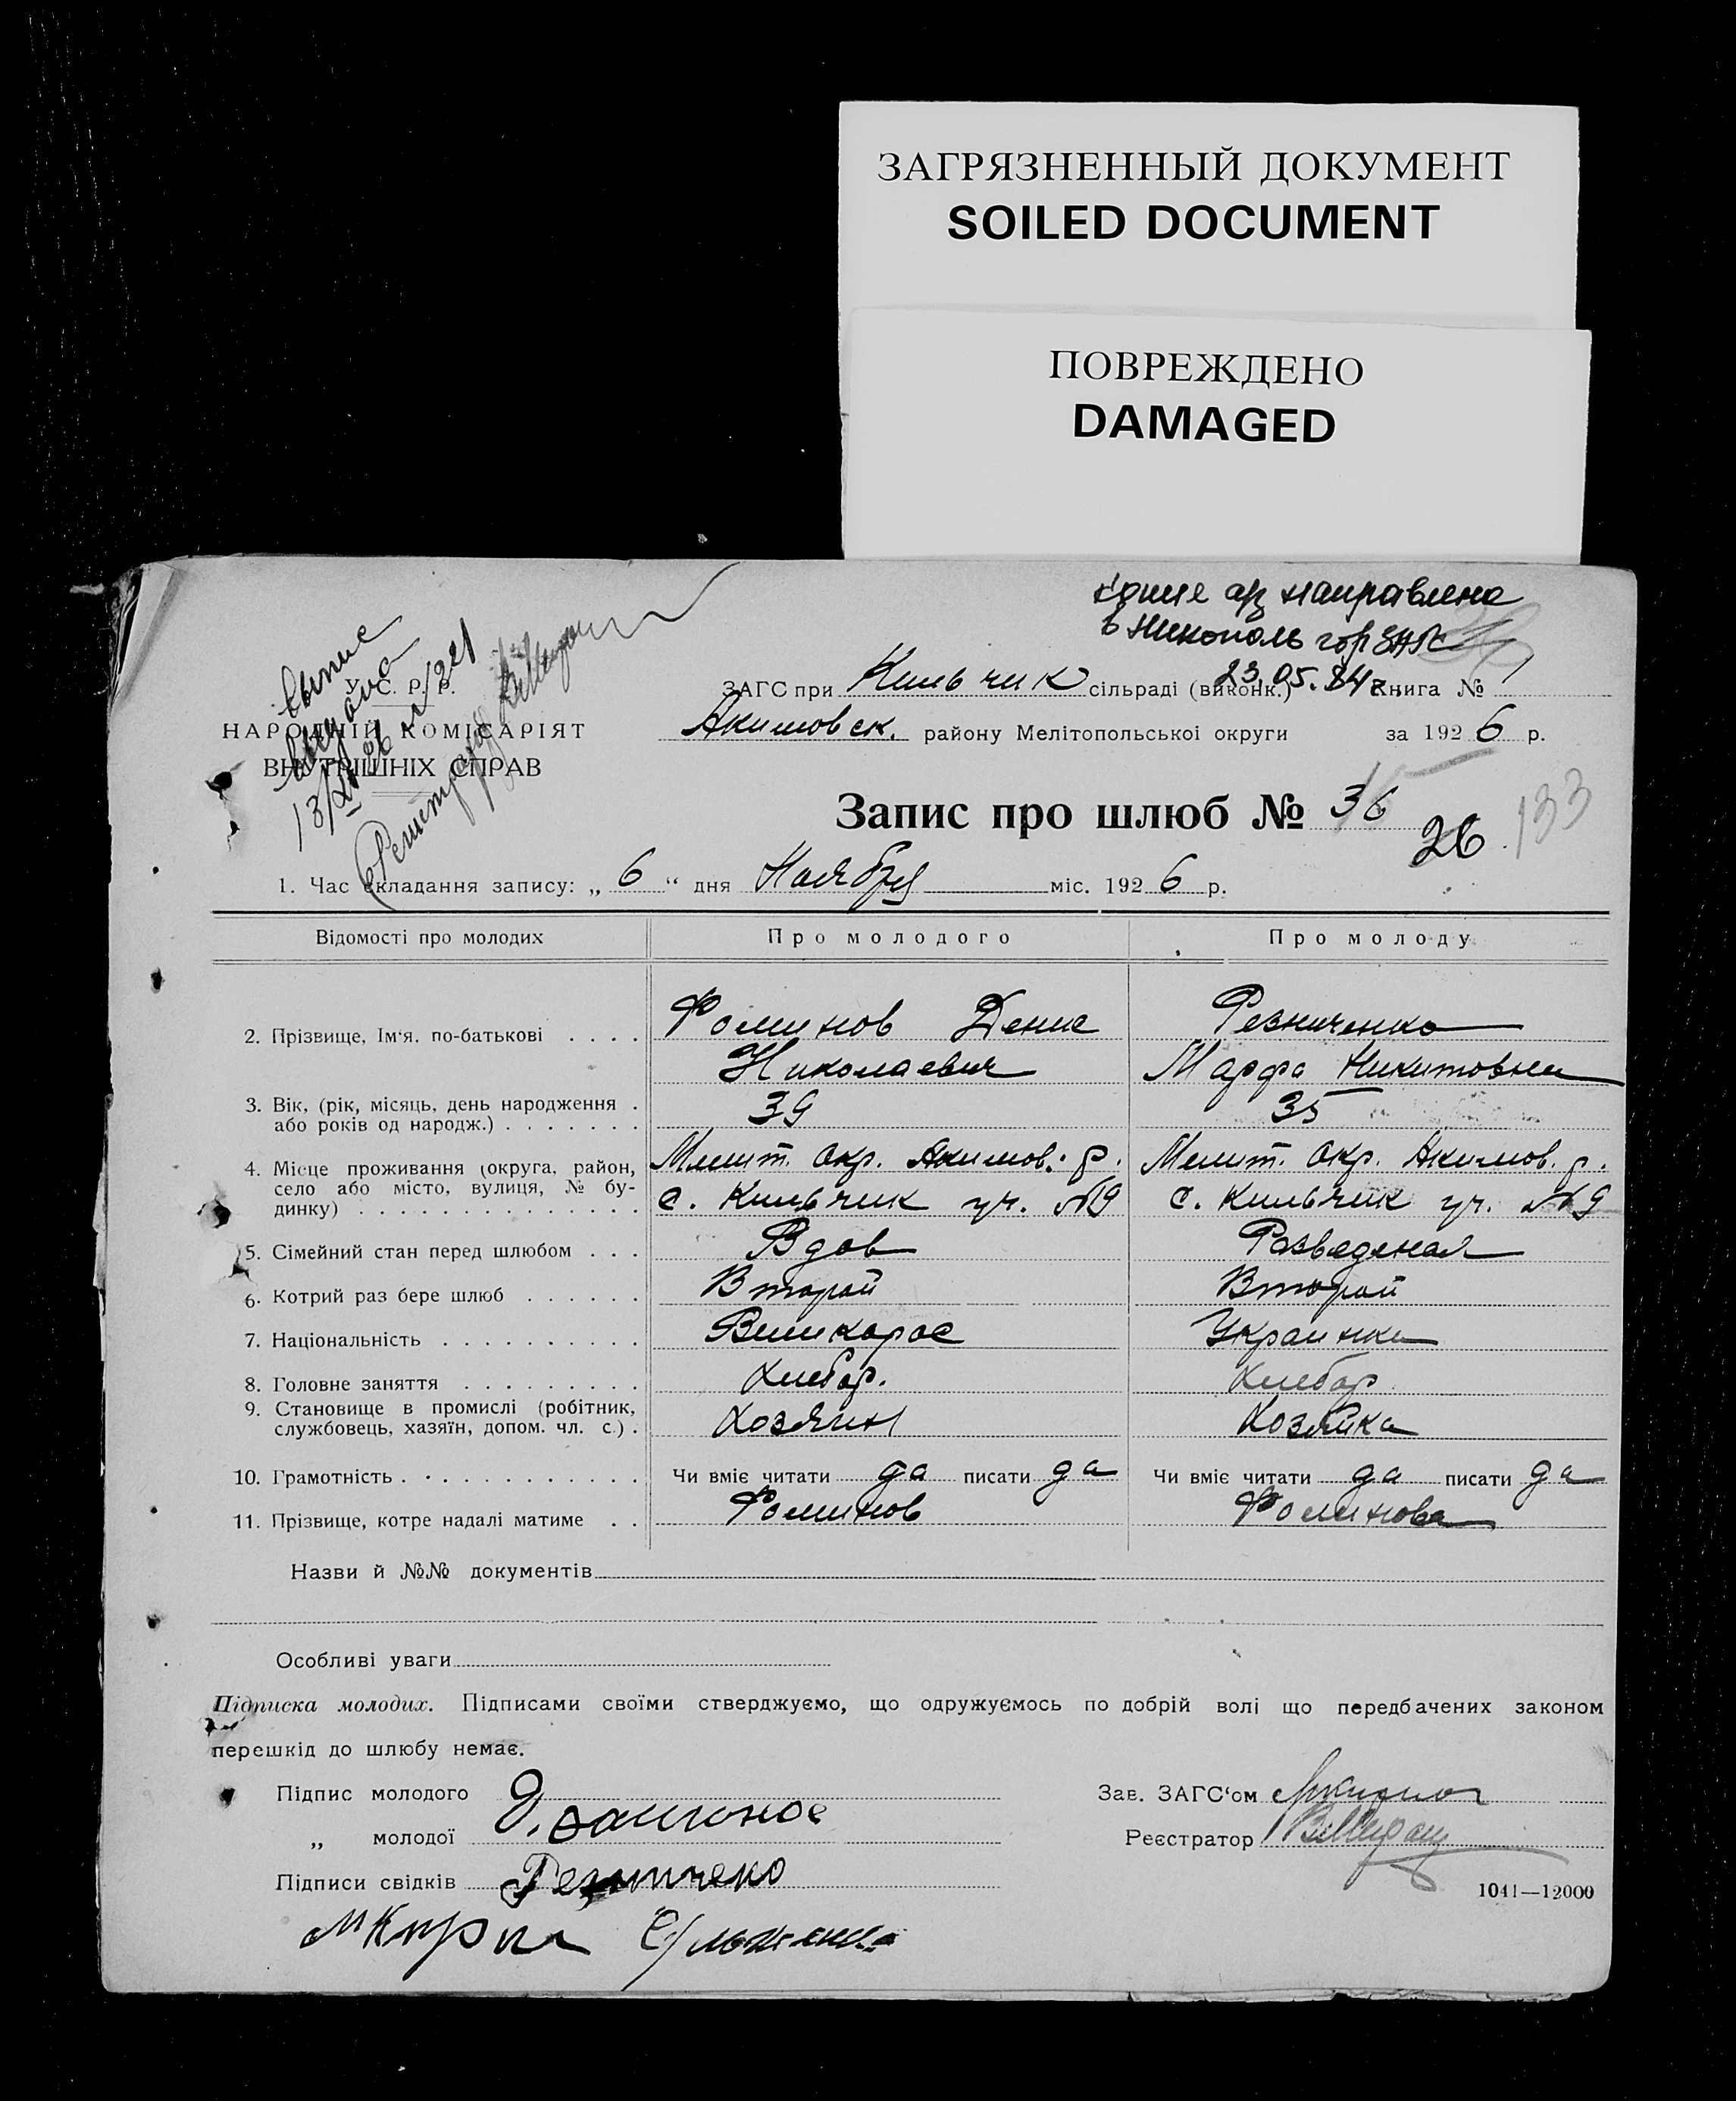 ЗАГРЯЗНЕННЫЙ ДОКУМЕНТ
SOILED DOCUMENT
ПОВРЕЖДЕНО
DAMAGED
направлена
в Никополь гор ЗАГС
23.05.84 г.
У. С. Р. Р.
НАРОДНІЙ КОМІСАРІЯТ
ВНУТРІШНІХ СПРАВ
ЗАГС при Кильчик сільраді (виконк.) Книга № 1
Акимовск. району Мелітопольської округи за 1926 р.
Запис про шлюб № 36
26
133
1. Час складання запису: „ 6 “ дня Ноября міс. 1926 р.
Відомості про молодих Про молодого Про молоду
2. Прізвище, Ім‘я. по-батькові . . . . Фоминов Денис Резниченко
Николаевич Марфа Никитовна
3. Вік, (рік, місяць, день народження . 39 35
або років од народж.) . . . . . . .
4. Місце проживання (округа, район, Мелит. Окр. Акимов. р. Мелит. Окр. Акимов. р.
село або місто, вулиця, № бу- с. Кильчик уч. №9 с. Кильчик уч. №9
динку) . . . . . . . . . . . . . .
5. Сімейний стан перед шлюбом . . . Вдов Разведеная
6. Котрий раз бере шлюб . . . . . . Второй Второй
7. Національність . . . . . . . . . . Великорос Украинка
8. Головне заняття . . . . . . . . . Хлебор. Хлебор
9. Становище в промислі (робітник,
службовець, хазяїн, допом. чл. с.) . Хозяин Хозяйка
10. Грамотність . . . . . . . . . . . . Чи вміє читати да писати да Чи вміє читати да писати да
11. Прізвище, котре надалі матиме . . Фоминов Фоминова
Назви й №№ документів
Особливі уваги
Підписка молодих. Підписами своїми стверджуємо, що одружуємось по добрій волі що передбачених законом
перешкід до шлюбу немає.
Підпис молодого
„ молодої
Підписи свідків
Зав. ЗАГС‘ом
Реєстратор
1041—12000